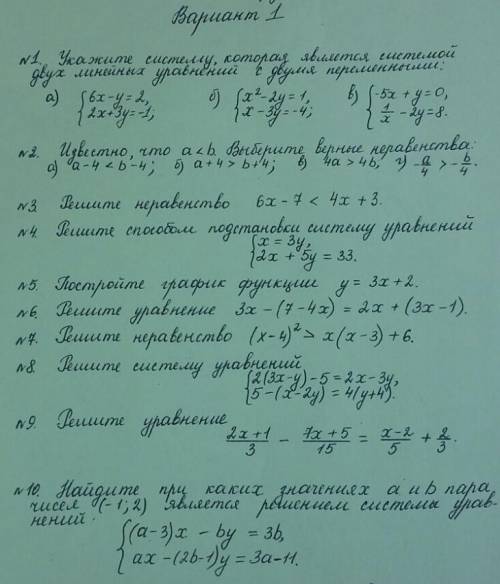 Вариант 1
№1. Укажите систему, которая является системой
двух линейных уравнений с двумя переменными:
а) {6x-y=2, б) {x²-2y=1, в) {-5x+y=0,
2x+3y=-1; x-3y=-4; 1/x -2y=8.
№2. Известно, что a<b. Выберите верные неравенства:
а) a-4<b-4; б) a+4>b+4; в) 4a>4b, г) -a/4>-b/4.
№3. Решите неравенство 6x-7<4x+3.
№4. Решите способом подстановки систему уравнений
{x=3y,
2x+5y=33.
№5. Постройте график функции y=3x+2.
№6. Решите уравнение 3x-(7-4x)=2x+(3x-1).
№7. Решите неравенство (x-4)²>x(x-3)+6.
№8. Решите систему уравнений
{2(3x-y)-5=2x-3y,
5-(x-2y)=4(y+4).
№9. Решите уравнение
(2x+1)/3 - (7x+5)/15 = (x-2)/5 + 2/3.
№10. Найдите при каких значениях a и b пара
чисел (-1; 2) является решением системы урав-
нений.
{(a-3)x-by=3b,
ax-(2b-1)y=3a-11.